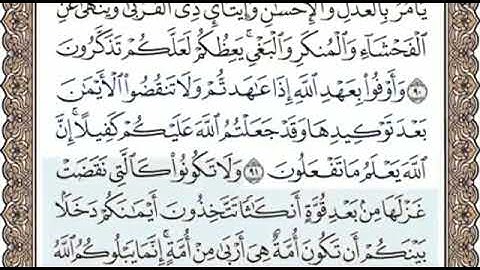 يَأْمُرُ بِالْعَدْلِ وَالْإِحْسَانِ وَإِيتَاءِ ذِي الْقُرْبَىٰ وَيَنْهَىٰ عَنِ
الْفَحْشَاءِ وَالْمُنكَرِ وَالْبَغْيِ ۚ يَعِظُكُمْ لَعَلَّكُمْ تَذَكَّرُونَ
٩٠ وَأَوْفُوا بِعَهْدِ اللَّهِ إِذَا عَاهَدتُّمْ وَلَا تَنقُضُوا الْأَيْمَٰنَ
بَعْدَ تَوْكِيدِهَا وَقَدْ جَعَلْتُمُ اللَّهَ عَلَيْكُمْ كَفِيلًا ۚ إِنَّ
اللَّهَ يَعْلَمُ مَا تَفْعَلُونَ ٩١ وَلَا تَكُونُوا كَالَّتِي نَقَضَتْ
غَزْلَهَا مِن بَعْدِ قُوَّةٍ أَنكَاثًا تَتَّخِذُونَ أَيْمَٰنَكُمْ دَخَلًا
بَيْنَكُمْ أَن تَكُونَ أُمَّةٌ هِيَ أَرْبَىٰ مِنْ أُمَّةٍ ۚ إِنَّمَا يَبْلُوكُمُ اللَّهُ